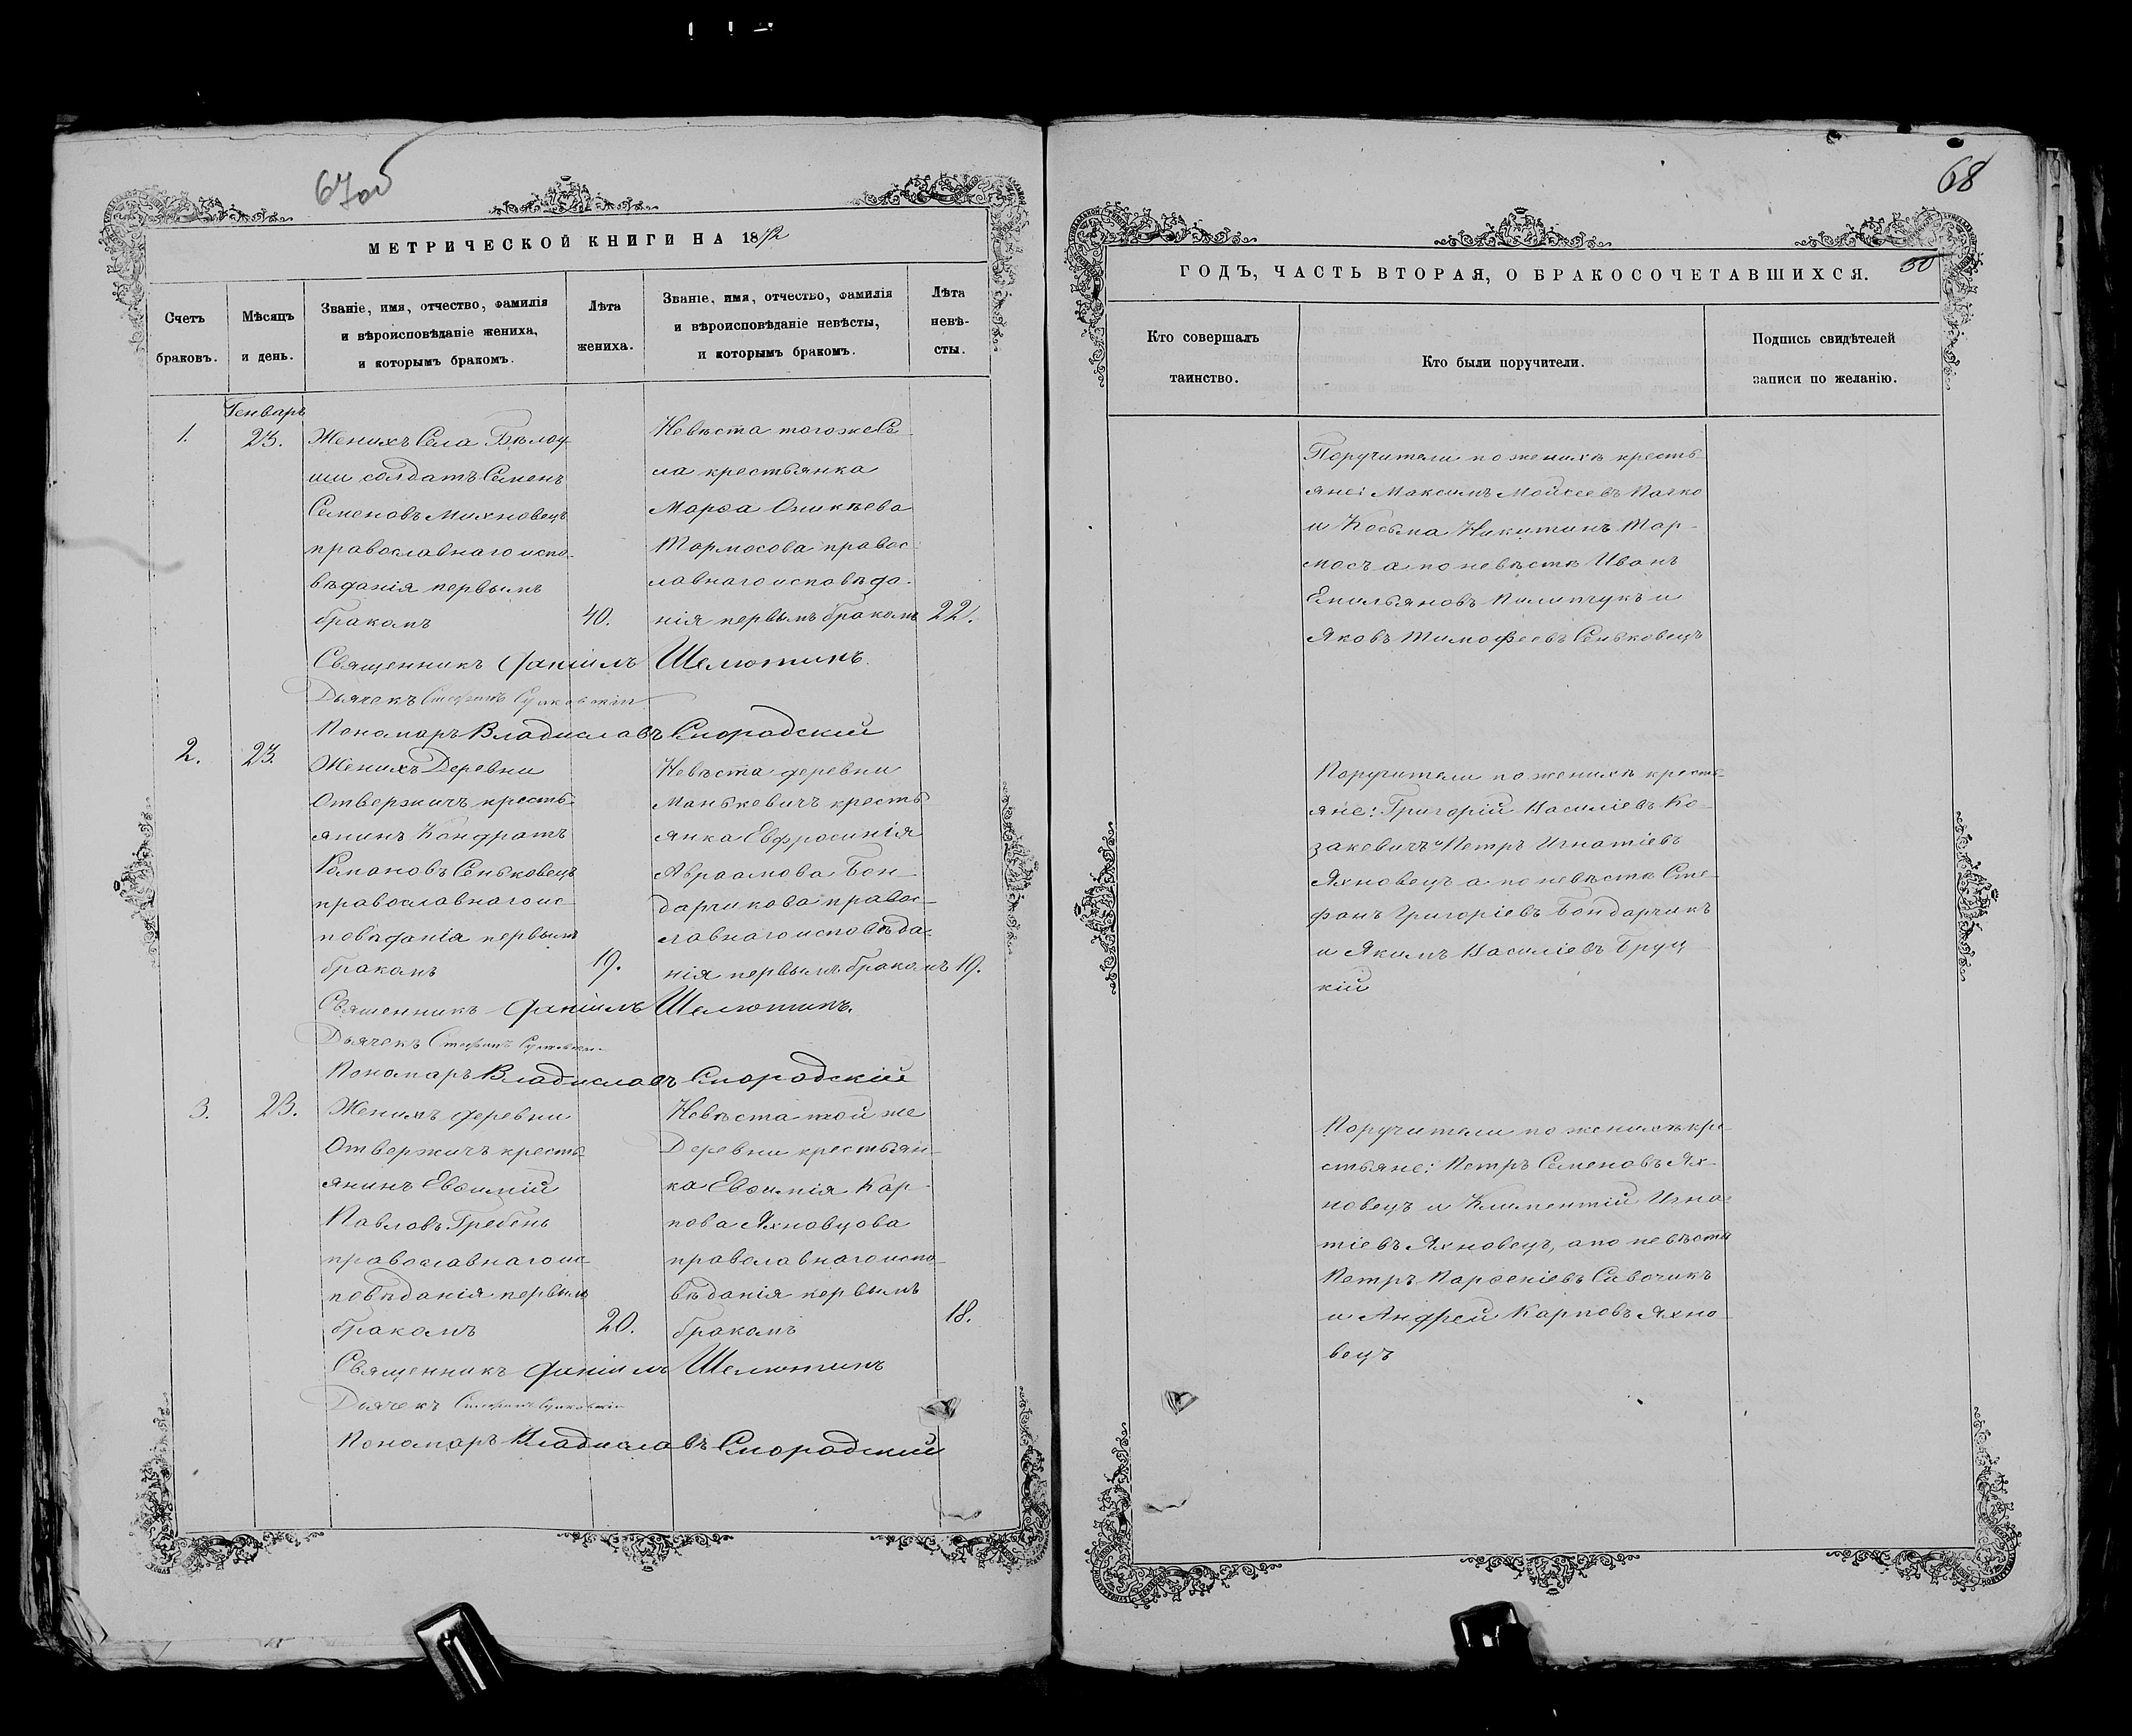 67об
МЕТРИЧЕСКОЙ КНИГИ НА 1872
Счетъ браковъ.
Мѣсяцъ и день.
Званіе, имя, отчество, фамилія
и вѣроисповѣданіе жениха,
и которымъ бракомъ.
Лѣта жениха.
Званіе, имя, отчество, фамилія
и вѣроисповѣданіе невѣсты,
и которымъ бракомъ.
Лѣта невѣ-
сты.
Генварь
1.
23.
Женихъ Села Бѣлоу-
ши солдатъ Семенъ
Семеновъ Михновецъ
православнаго испо-
вѣданія первымъ
бракомъ
40.
Невѣста тогоже Се-
ла крестьянка
Марѳа Оникѣева
Тормосова правос-
лавнаго исповѣда-
нія первымъ бракомъ
22.
Священникъ Даніилъ Шелютинъ.
Дьячекъ Стефанъ
Пономаръ Владиславъ Смородскій
2.
23.
Женихъ Деревни
Отвержичъ кресть-
янинъ Кондратъ
Романовъ Сеньковецъ
православнаго ис-
повѣданія первымъ
бракомъ
19.
Невѣста деревни
Манькевичъ кресть-
янка Евфросинія
Авраамова Бон-
дарчикова правос-
лавнаго исповѣда-
нія первымъ бракомъ
19.
Священникъ Даніилъ Шелютинъ.
Дьячекъ Стефанъ
Пономаръ Владиславъ Смородскій
3.
23.
Женихъ деревни
Отвержичъ кресть-
янинъ Евѳимій
Павловъ Гребень
православнаго ис-
повѣданія первымъ
бракомъ
20.
Невѣста той же
Деревни крестьян-
ка Евѳимія Кар-
пова Яхновцова
православнаго испо-
вѣданія первымъ
бракомъ
18.
Священникъ Даніилъ Шелютинъ
Дьячекъ Стефанъ
Пономаръ Владиславъ Смородскій
68
50
ГОДЪ, ЧАСТЬ ВТОРАЯ, О БРАКОСОЧЕТАВШИХСЯ.
Кто совершалъ
таинство.
Кто были поручители.
Подпись свидѣтелей
записи по желанію.
Поручители по женихѣ кресть-
яне: Максимъ Мойсеевъ
и Косьма Никитинъ Тор-
мосъ а по невѣстѣ Иванъ
Емильяновъ Пилипчукъ и
Яковъ Тимофеевъ Сеньковецъ
Поручители по женихѣ кресть-
яне: Григорій Василіевъ Ко-
закевичъ и Петръ Игнатіевъ
Яхновецъ а по невѣстѣ Сте-
фанъ Григоріевъ Бондарчикъ
и Якимъ Василіевъ Бруц-
кій
Поручители по женихѣ кре-
стьяне: Петръ Семеновъ Ях-
новецъ и Климентій Игна-
тіевъ Яхновецъ, а по невѣстѣ
Петръ Парѳеніевъ Савочикъ
и Андрей Карповъ Яхно-
вецъ